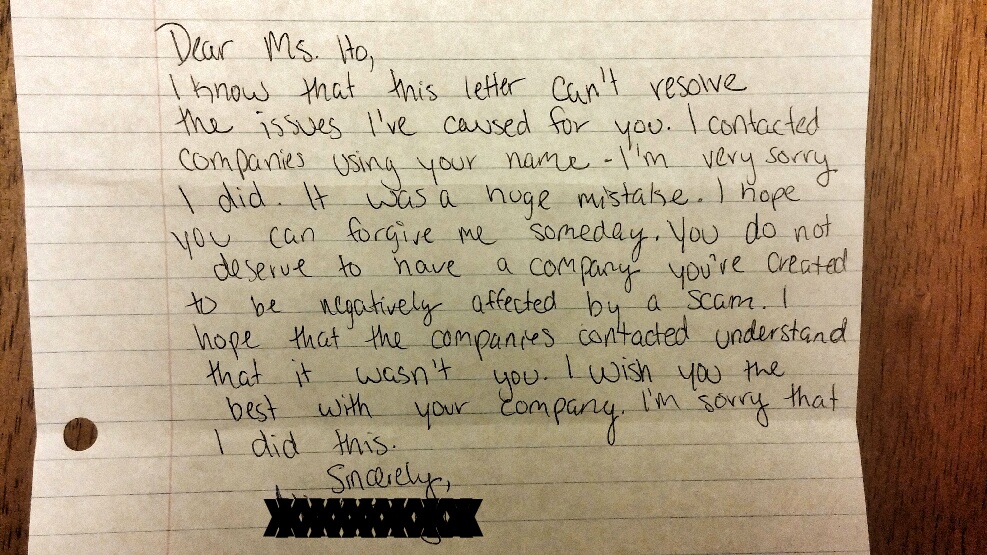 Dear Ms. Ho,
I know that this letter can't resolve
the issues I've caused for you. I contacted
companies using your name - I'm very sorry
I did. It was a huge mistake. I hope
you can forgive me someday. You do not
deserve to have a company you've created
to be negatively affected by a scam. I
hope that the companies contacted understand
that it wasn't you. I wish you the
best with your company. I'm sorry that
I did this.
Sincerely,